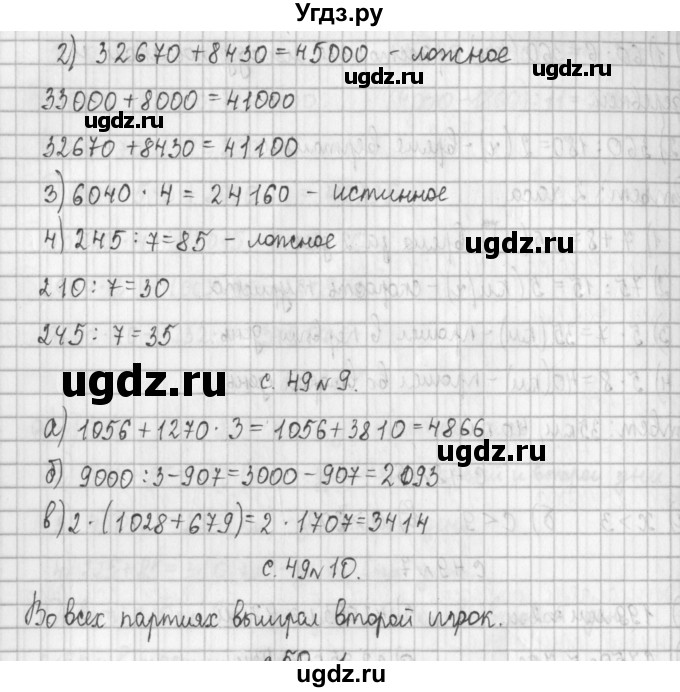 Угдз.ру
2) 32670 + 8430 = 45000 - ложное
ugdz.ru ugdz.ru
33000 + 8000 = 41000
ugdz.ru
32670 + 8430 = 41100
3) 6040 · 4 = 24160 - истинное
4) 245 : 7 = 85 - ложное
ugdz.ru
210 : 7 = 30
245 : 7 = 35
ugdz.ru
с. 49 N 9.
а) 1056 + 1270 · 3 = 1056 + 3810 = 4866
ugdz.ru
б) 9000 : 3 - 907 = 3000 - 907 = 2093
в) 2 · (1028 + 679) = 2 · 1707 = 3414
с. 49 N 10.
Во всех партиях выиграл второй игрок.
ugdz.ru
ugdz.ru